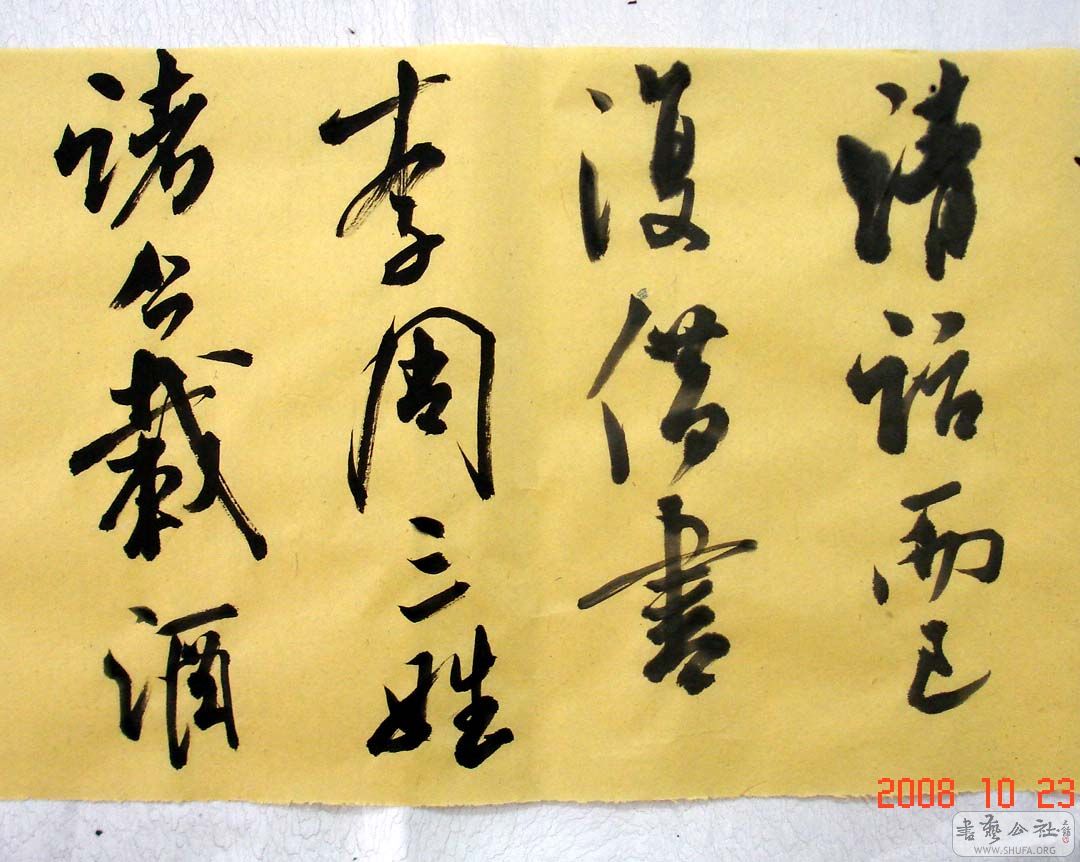 清話而已
復借書
李周三姓
諸公載酒
2008 10 23
書藝公社
WWW.SHUFA.ORG